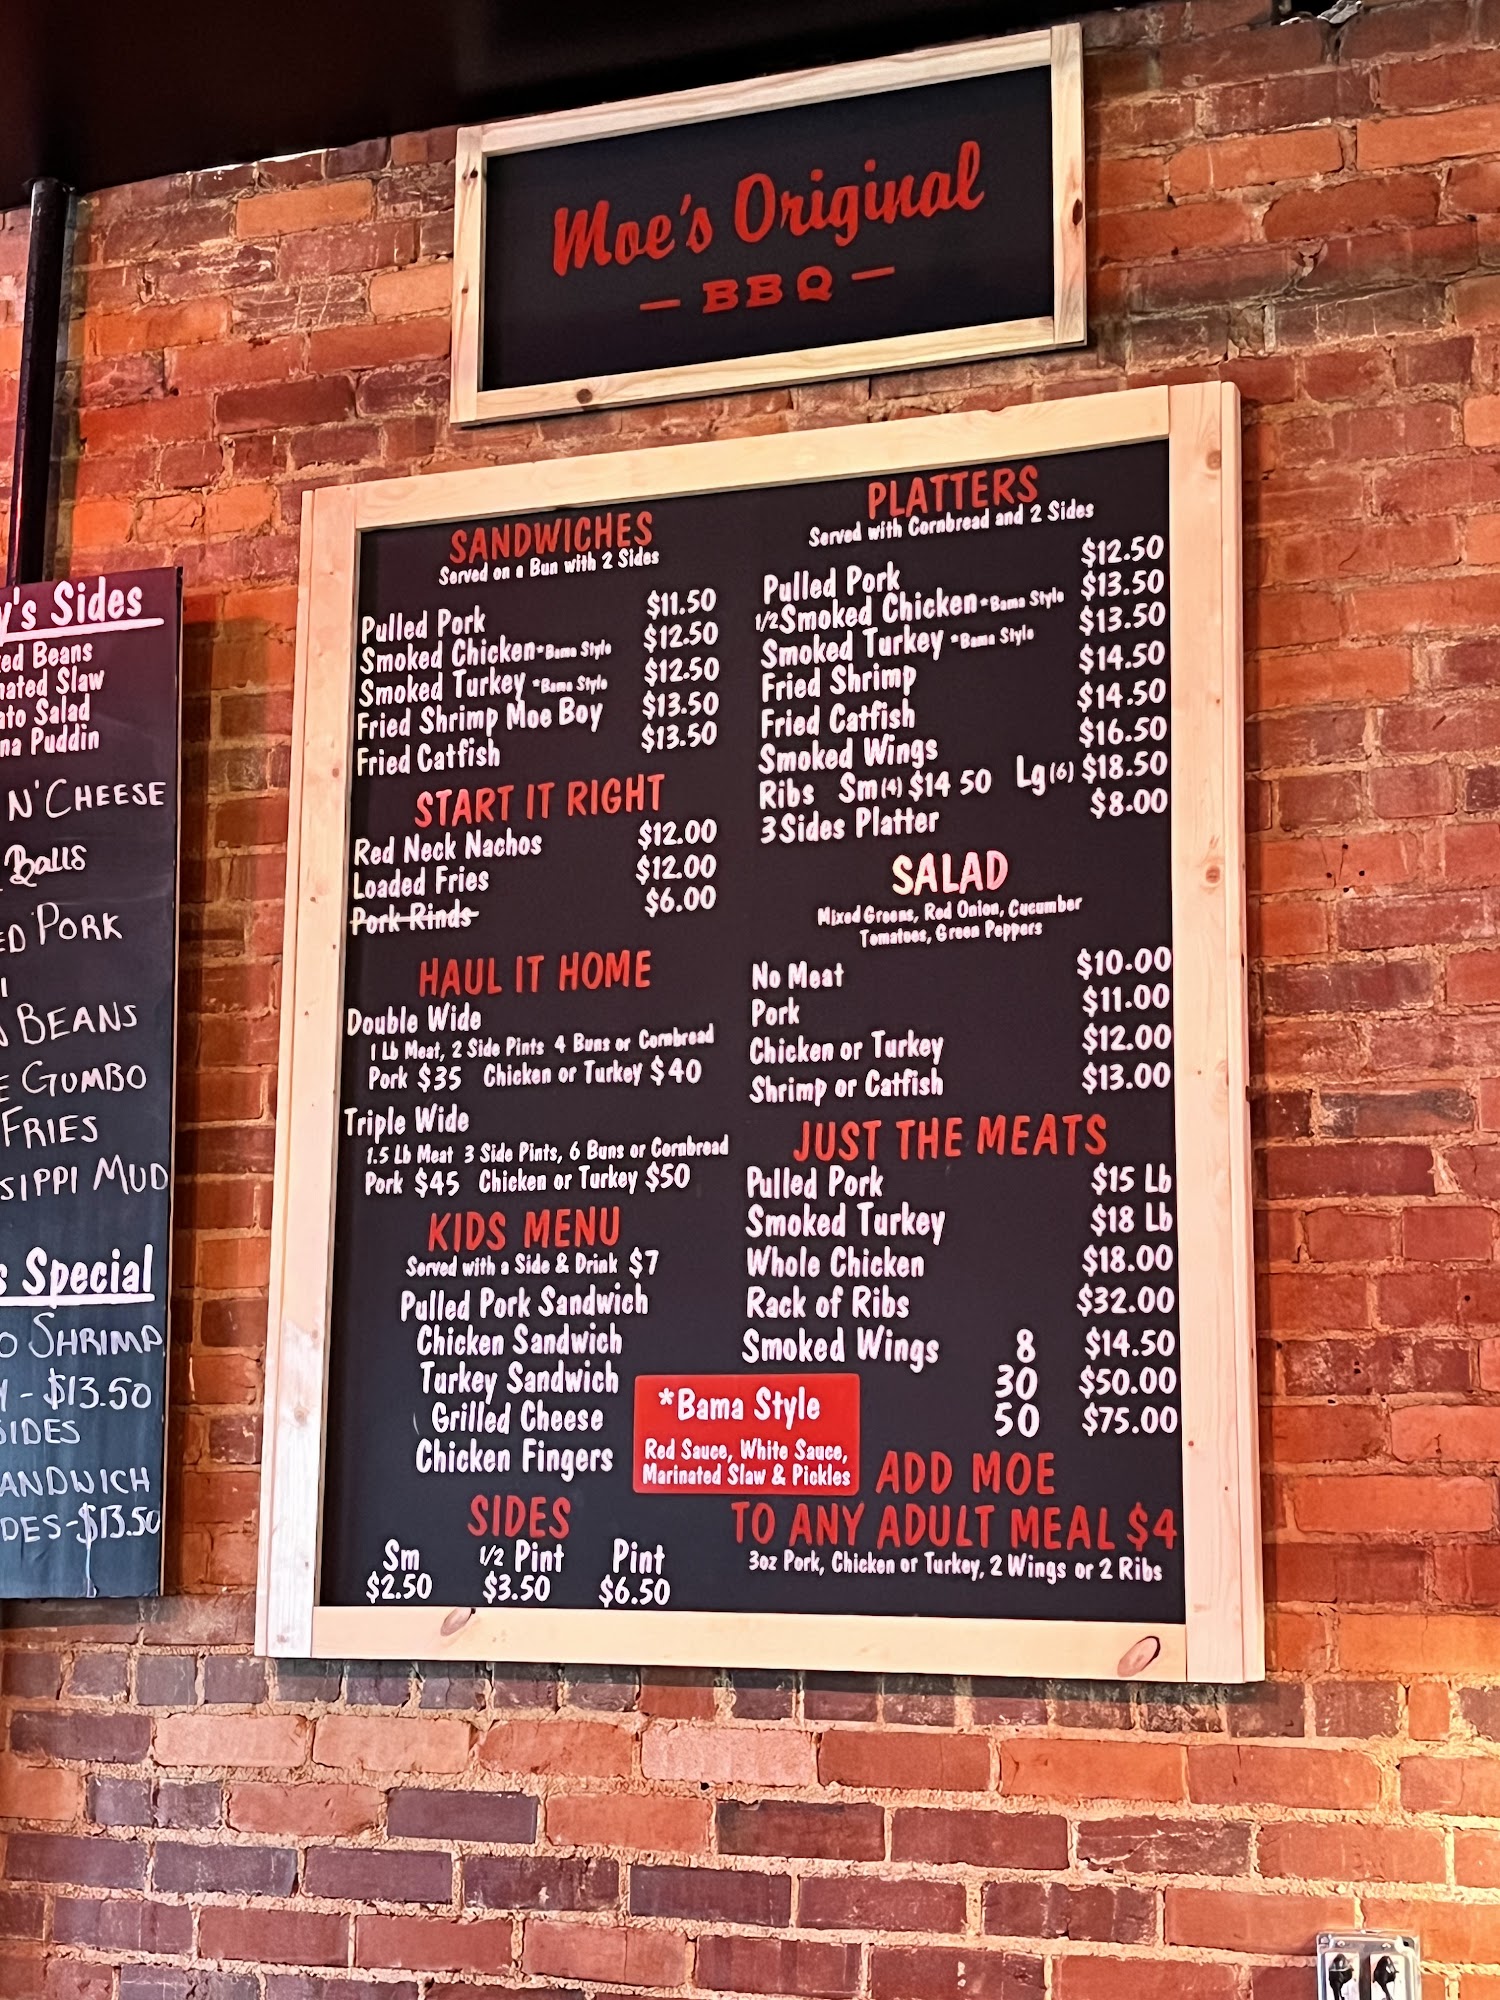 Moe's Original
BBQ
SANDWICHES
Served on a Bun with 2 Sides
Pulled Pork $11.50
Smoked Chicken *Bama Style $12.50
Smoked Turkey *Bama Style $12.50
Fried Shrimp Moe Boy $13.50
Fried Catfish $13.50
START IT RIGHT
Red Neck Nachos $12.00
Loaded Fries $12.00
Pork Rinds $6.00
HAUL IT HOME
Double Wide
1 Lb Meat, 2 Side Pints 4 Buns or Cornbread
Pork $35 Chicken or Turkey $40
Triple Wide
1.5 Lb Meat 3 Side Pints, 6 Buns or Cornbread
Pork $45 Chicken or Turkey $50
KIDS MENU
Served with a Side & Drink $7
Pulled Pork Sandwich
Chicken Sandwich
Turkey Sandwich
Grilled Cheese
Chicken Fingers
SIDES
Sm 1/2 Pint Pint
$2.50 $3.50 $6.50
PLATTERS
Served with Cornbread and 2 Sides
Pulled Pork $12.50
1/2 Smoked Chicken *Bama Style $13.50
Smoked Turkey *Bama Style $13.50
Fried Shrimp $14.50
Fried Catfish $14.50
Smoked Wings $16.50
Ribs Sm (4) $14 50 Lg (6) $18.50
3 Sides Platter $8.00
SALAD
Mixed Greens, Red Onion, Cucumber
Tomatoes, Green Peppers
No Meat $10.00
Pork $11.00
Chicken or Turkey $12.00
Shrimp or Catfish $13.00
JUST THE MEATS
Pulled Pork $15 Lb
Smoked Turkey $18 Lb
Whole Chicken $18.00
Rack of Ribs $32.00
Smoked Wings 8 $14.50
30 $50.00
50 $75.00
*Bama Style
Red Sauce, White Sauce,
Marinated Slaw & Pickles
ADD MOE
TO ANY ADULT MEAL $4
3oz Pork, Chicken or Turkey, 2 Wings or 2 Ribs
Sides
Beans
Slaw
Salad
Puddin
N'CHEESE
BALLS
PORK
BEANS
GUMBO
FRIES
MUD
Special
SHRIMP
- $13.50
SIDES
-$13.50